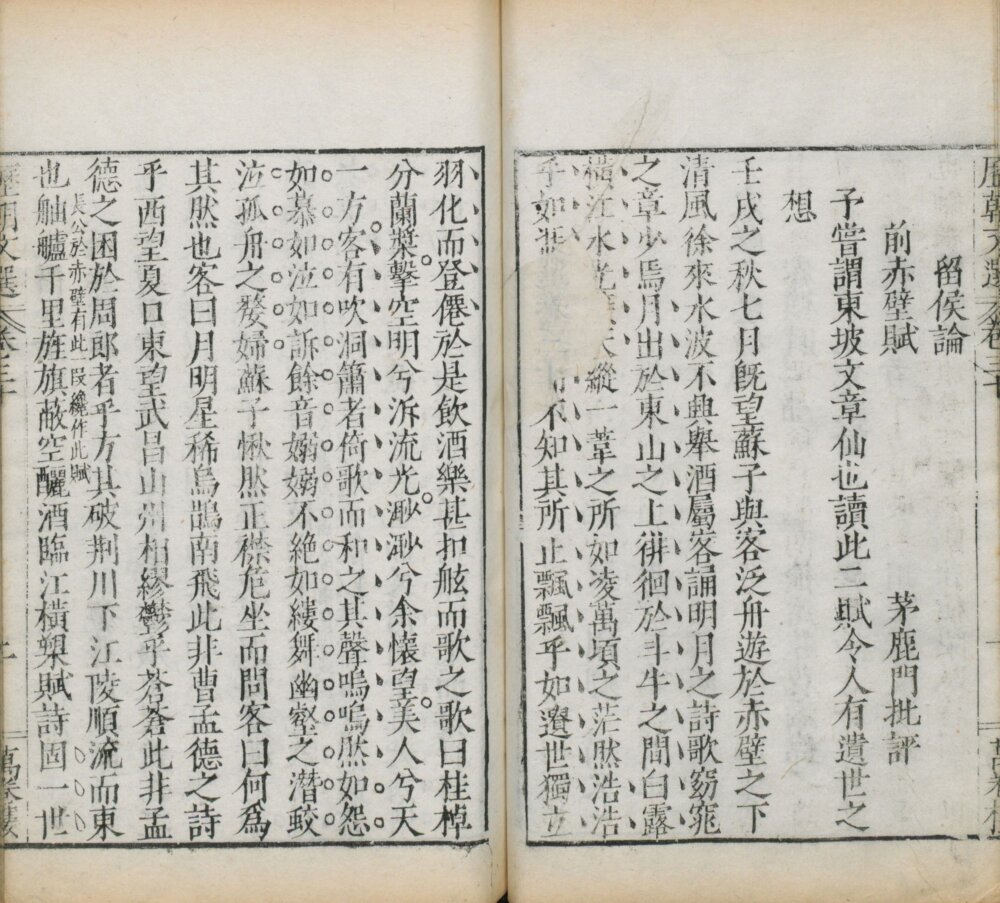 留侯論
前赤壁賦 茅鹿門批評
予嘗謂東坡文章仙也讀此二賦令人有遺世之
想
壬戌之秋七月既望蘇子與客泛舟遊於赤壁之下
清風徐來水波不興舉酒屬客誦明月之詩歌窈窕
之章少焉月出於東山之上徘徊於斗牛之間白露
橫江水光 天縱一葦之所如凌萬頃之茫然浩浩
乎如 不知其所止飄飄乎如遺世獨立
羽化而登僊於是飲酒樂甚扣舷而歌之歌曰桂棹
分蘭槳擊空明兮泝流光渺渺兮余懷望美人兮天
一方客有吹洞簫者倚歌而和之其聲嗚嗚然如怨
如慕如泣如訴餘音嫋嫋不絶如縷舞幽壑之潛蛟
泣孤舟之嫠婦蘇子愀然正襟危坐而問客曰何爲
其然也客曰月明星稀烏鵲南飛此非曹孟德之詩
乎西望夏口東望武昌山州相繆鬱乎蒼蒼此非孟
德之困於周郎者乎方其破荆川下江陵順流而東
長公於赤壁有此一段纔作此賦
也舳艫千里旌旗蔽空釃酒臨江橫槊賦詩固一世